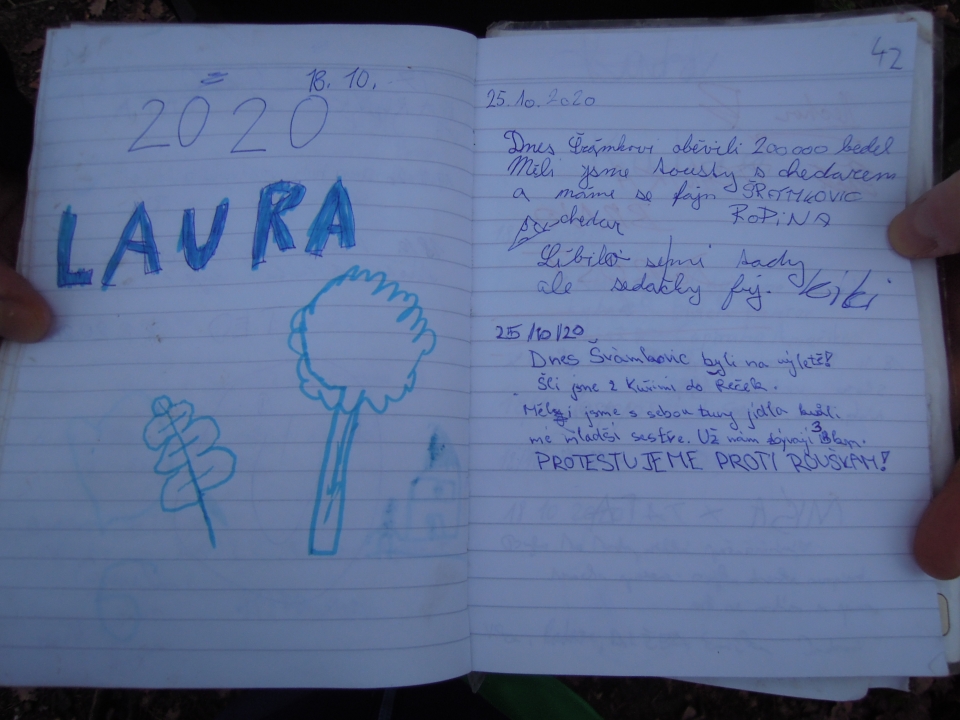 18. 10.
2020
LAURA
42
25.10.2020
Dnes Šrámkovi objevili 200000 bedel
Měli jsme tousty s chedarem
a máme se fajn
chedar
ROPINA
Líbilo se mi tady
ale sedačky fuj. Kiki
25/10/20
Dnes Švámbovic byli na výletě!
Šli jsme z Kuřimi do Řeček.
Měli jsme s sebou tuny jídla kvůli
mé mladší sestře. Už nám zbývají 3
PROTESTUJEME PROTI ROUŠKÁM!